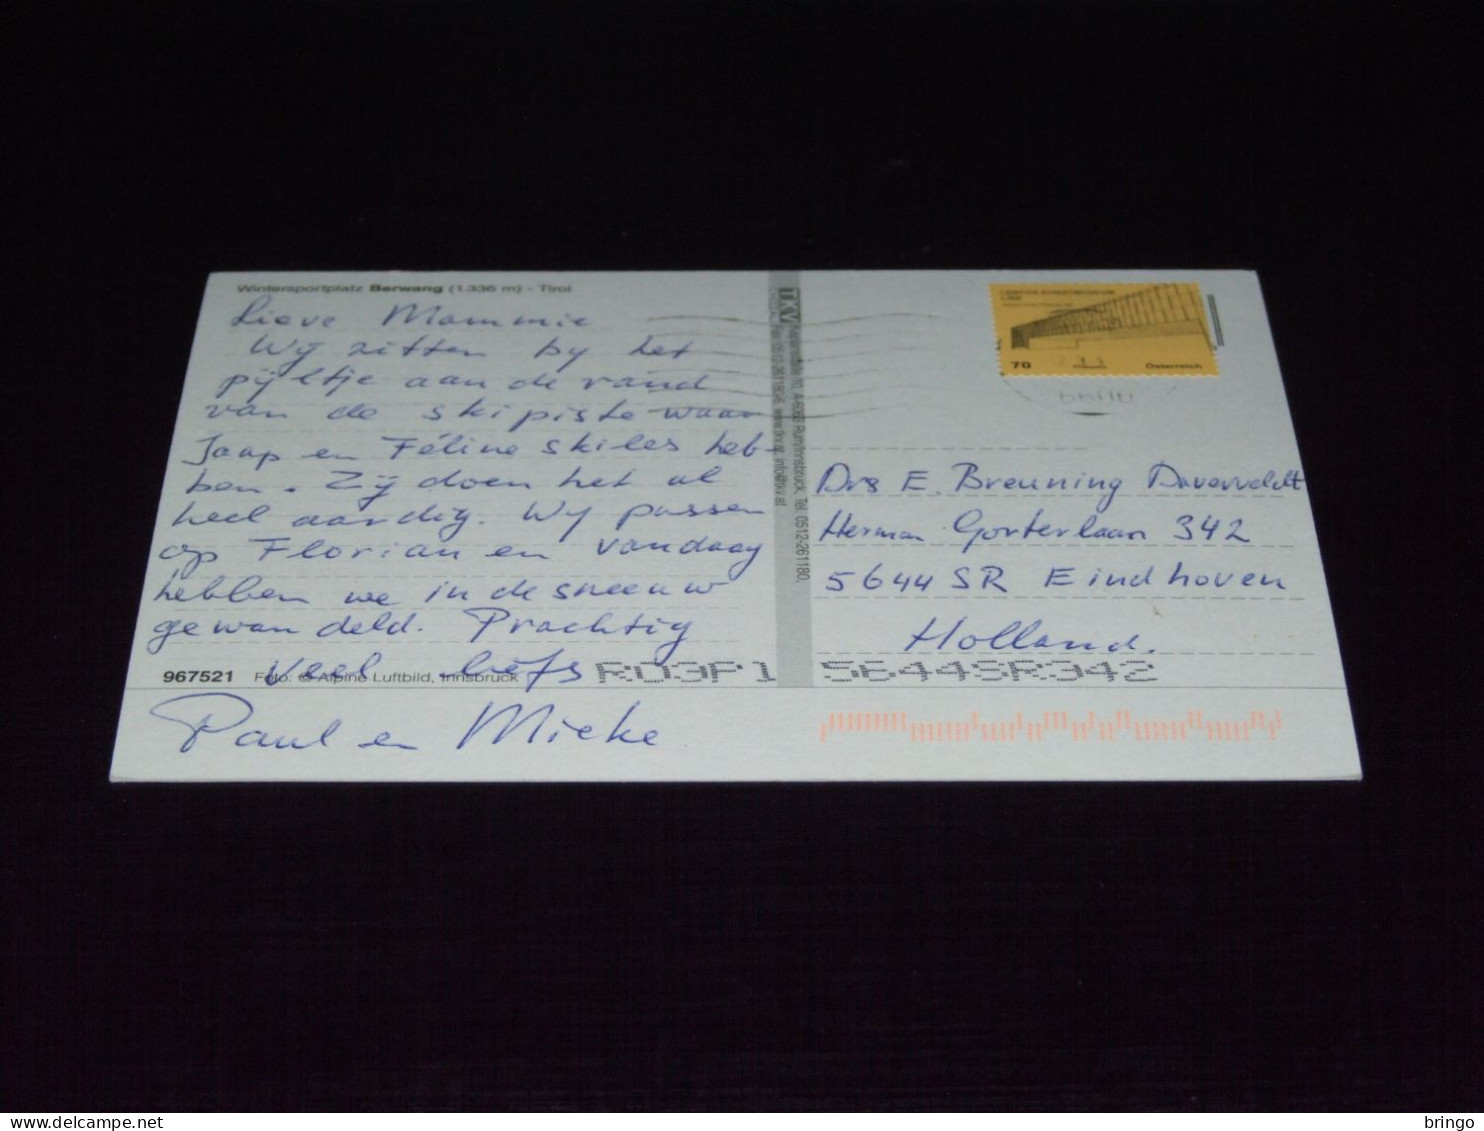 Wintersportplatz Berwang (1.336 m) - Tirol
Lieve Mammie
Wij zitten by het
pijltje aan de rand
van de skipiste waar
Jaap en Féline skiles heb-
ben. Zij doen het al
heel aardig. Wij passen
op Florian en vandaag
hebben we in de sneeuw
gewandeld. Prachtig
veel liefs
Paul en Mieke
967521 Foto: © Alpine Luftbild, Innsbruck
TKV
A-6063 Rum/Innsbruck, Tel. 0512-261180,
70
Österreich
Drs E. Breuning
Herman Gorterlaan 342
5644 SR Eindhoven
Holland.
R03P1 5644SR342
bringo